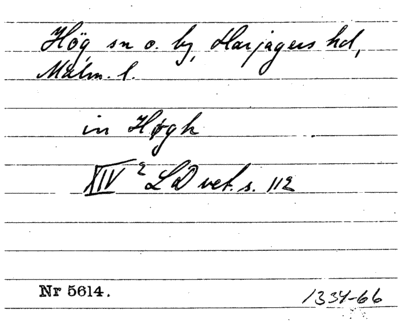 Hög sn o. by, Harjagers hd,
Malm. l.
in Høgh
XIV 2 LD vet. s. 112
Nr 5614.
1334-66